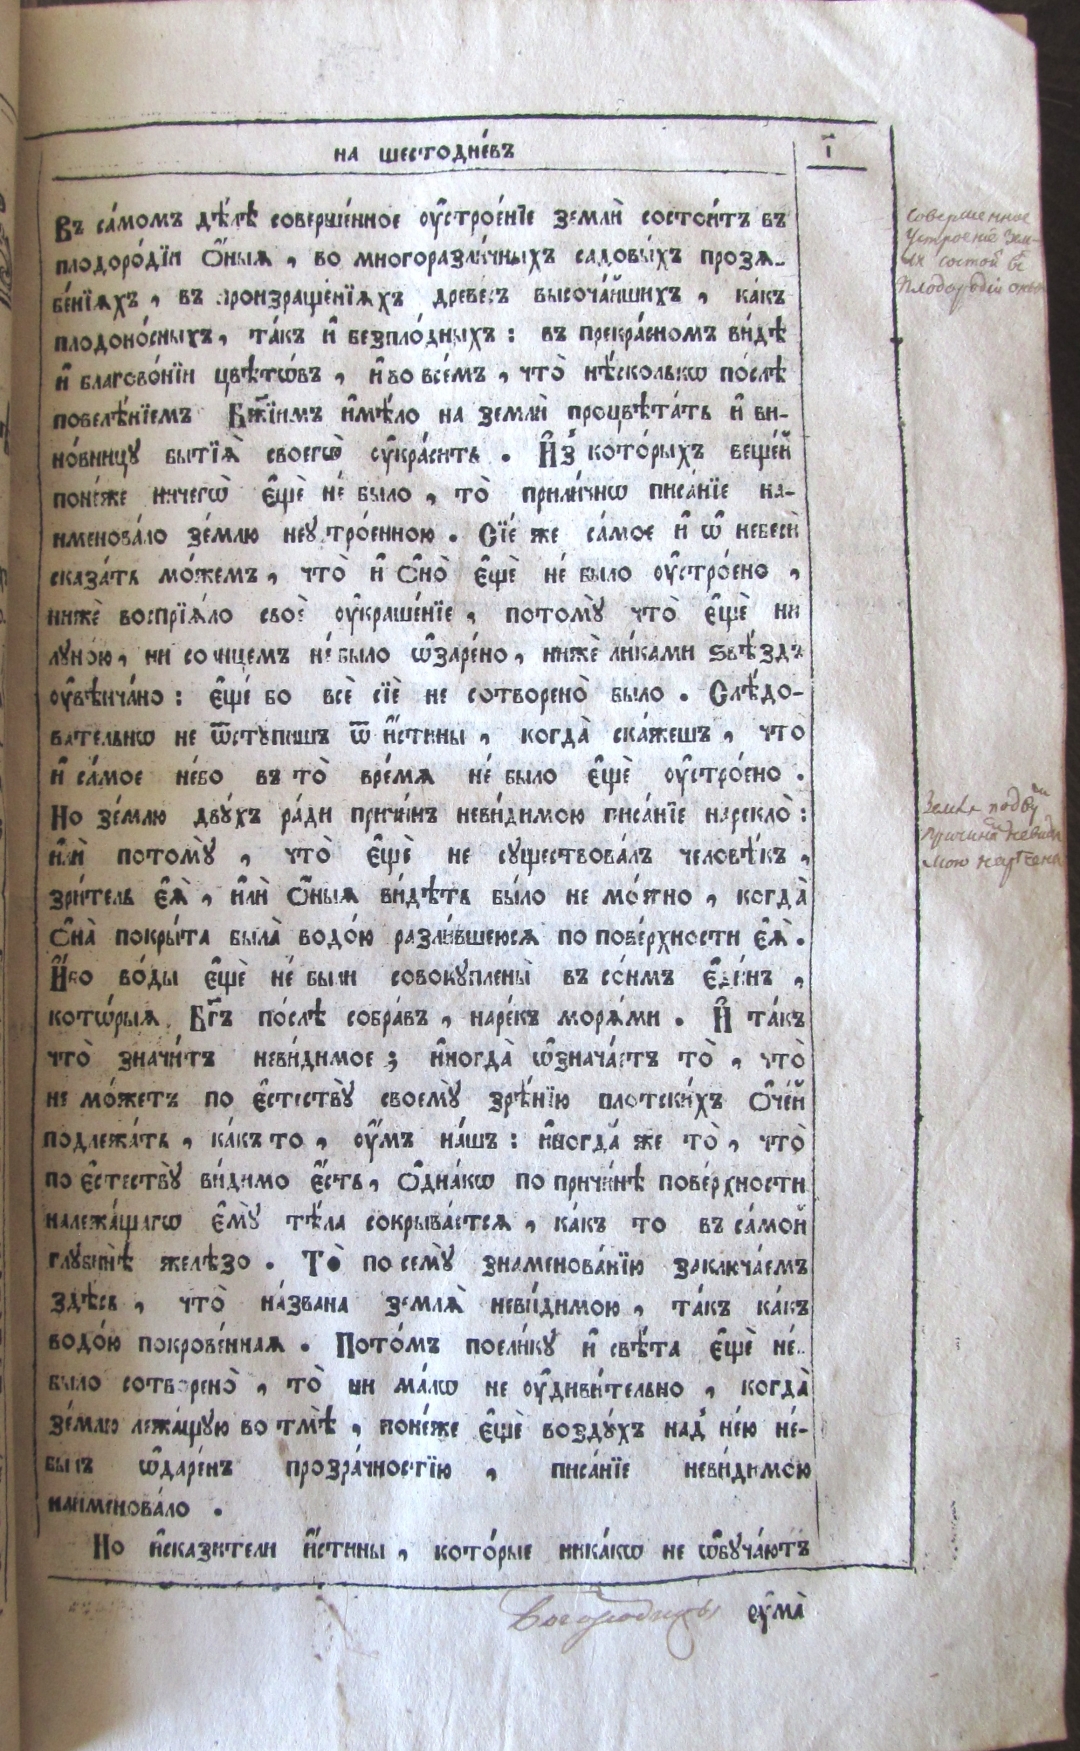 на шестодне́въ
і҃
Въ са́момъ дѣ́лѣ соверше́нное оу҆строе́нїе землѝ состои́тъ въ
плодоро́дїи ѻ҆́ныя , во многоразли́чныхъ садовы́хъ прозѧ-
бе́нїяхъ , въ произраще́нїяхъ древе́съ высоча́йшихъ , ка́къ
плодоно́сныхъ , та́къ и҆ безпло́дныхъ : въ прекра́сномъ ви́дѣ
и҆ благово́нїи цвѣтѡ́въ , и҆ во все́мъ , что̀ нѣ́сколькѡ по́слѣ
повелѣ́нїемъ Бж҃їимъ и҆мѣ́ло на землѝ процвѣта́ть и҆ ви-
но́вницу бытїѧ̀ своегѡ̀ оу҆кра́сить . И҆з̾ кото́рыхъ веще́й
поне́же ничегѡ̀ є҆щѐ не́ было , то̀ прили́чнѡ писа́нїе на-
именова́ло зе́млю неустро́енною . Сїе́ же са́мое и҆ ѡ҆ небесѝ
сказа́ть мо́жемъ , что̀ и҆ ѻ҆но̀ є҆щѐ не́ было оу҆стро́ено ,
нижѐ воспрїѧ́ло своѐ оу҆краше́нїе , потому̀ что̀ є҆щѐ ни
луно́ю , ни со́лнцемъ не́ было ѡ҆заре́но , нижѐ ли́ками ѕвѣ́здъ
оу҆вѣнча́но : є҆ще́ бо всѐ сїѐ не сотворено̀ было . Слѣ́до-
вательнѡ не ѿступишъ ѿ и҆́стины , когда̀ ска́жешъ , что
и҆ са́мое не́бо въ то̀ вре́мѧ не́ было є҆щѐ оу҆стро́ено .
Но зе́млю дву́хъ ра́ди причи́нъ неви́димою писа́нїе нарекло̀ :
и҆лѝ потому̀ , что̀ є҆щѐ не существова́лъ человѣ́къ ,
зри́тель є҆ѧ̀ , и҆лѝ ѻ҆́ныя ви́дѣть бы́ло не мо́жно , когда̀
ѻ҆на̀ покры́та была̀ водо́ю разли́вшеюсѧ по пове́рхности є҆ѧ̀ .
И҆́бо во́ды є҆щѐ не́ были совокуплены̀ въ со́нмъ є҆ди́нъ ,
котѡ́рыя Бг҃ъ по́слѣ собра́въ , наре́къ морѧ́ми . И҆ та́къ
что̀ значи́тъ неви́димое ; и҆ногда̀ ѡ҆знача́етъ то̀ , что̀
не мо́жетъ по є҆стеству̀ своему̀ зрѣ́нїю плотски́хъ ѻ҆че́й
подлежа́ть , ка́къ то , оу҆́мъ на́шъ : и҆ногда́ же то̀ , что̀
по є҆стеству̀ ви́димо є҆́сть , ѻ҆дна́кѡ по причи́нѣ пове́рхности
належа́щагѡ є҆му̀ тѣ́ла сокрыва́ется , ка́къ то въ са́мой
глубинѣ̀ желѣ́зо . То̀ по сему̀ знаменова́нїю заключа́емъ
здѣ́сь , что̀ на́звана землѧ̀ неви́димою , та́къ ка́къ
водо́ю покрове́нная . Пото́мъ поели́ку и҆ свѣ́та є҆щѐ не́
было сотворено̀ , то̀ ни ма́лѡ не оу҆диви́тельно , когда̀
зе́млю лежа́щую во тмѣ̀ , поне́же є҆щѐ воздухъ над̾ не́ю не́-
былъ ѡ҆даре́нъ прозра́чностїю , писа́нїе неви́димою
наименова́ло .
Но и҆скази́тели и҆́стины , кото́рые ника́кѡ не ѡ҆буча́ютъ
оу҆ма̀
совершенное
устроенїе зем-
состой
Плодородїи
Земля
причина невиди
мою